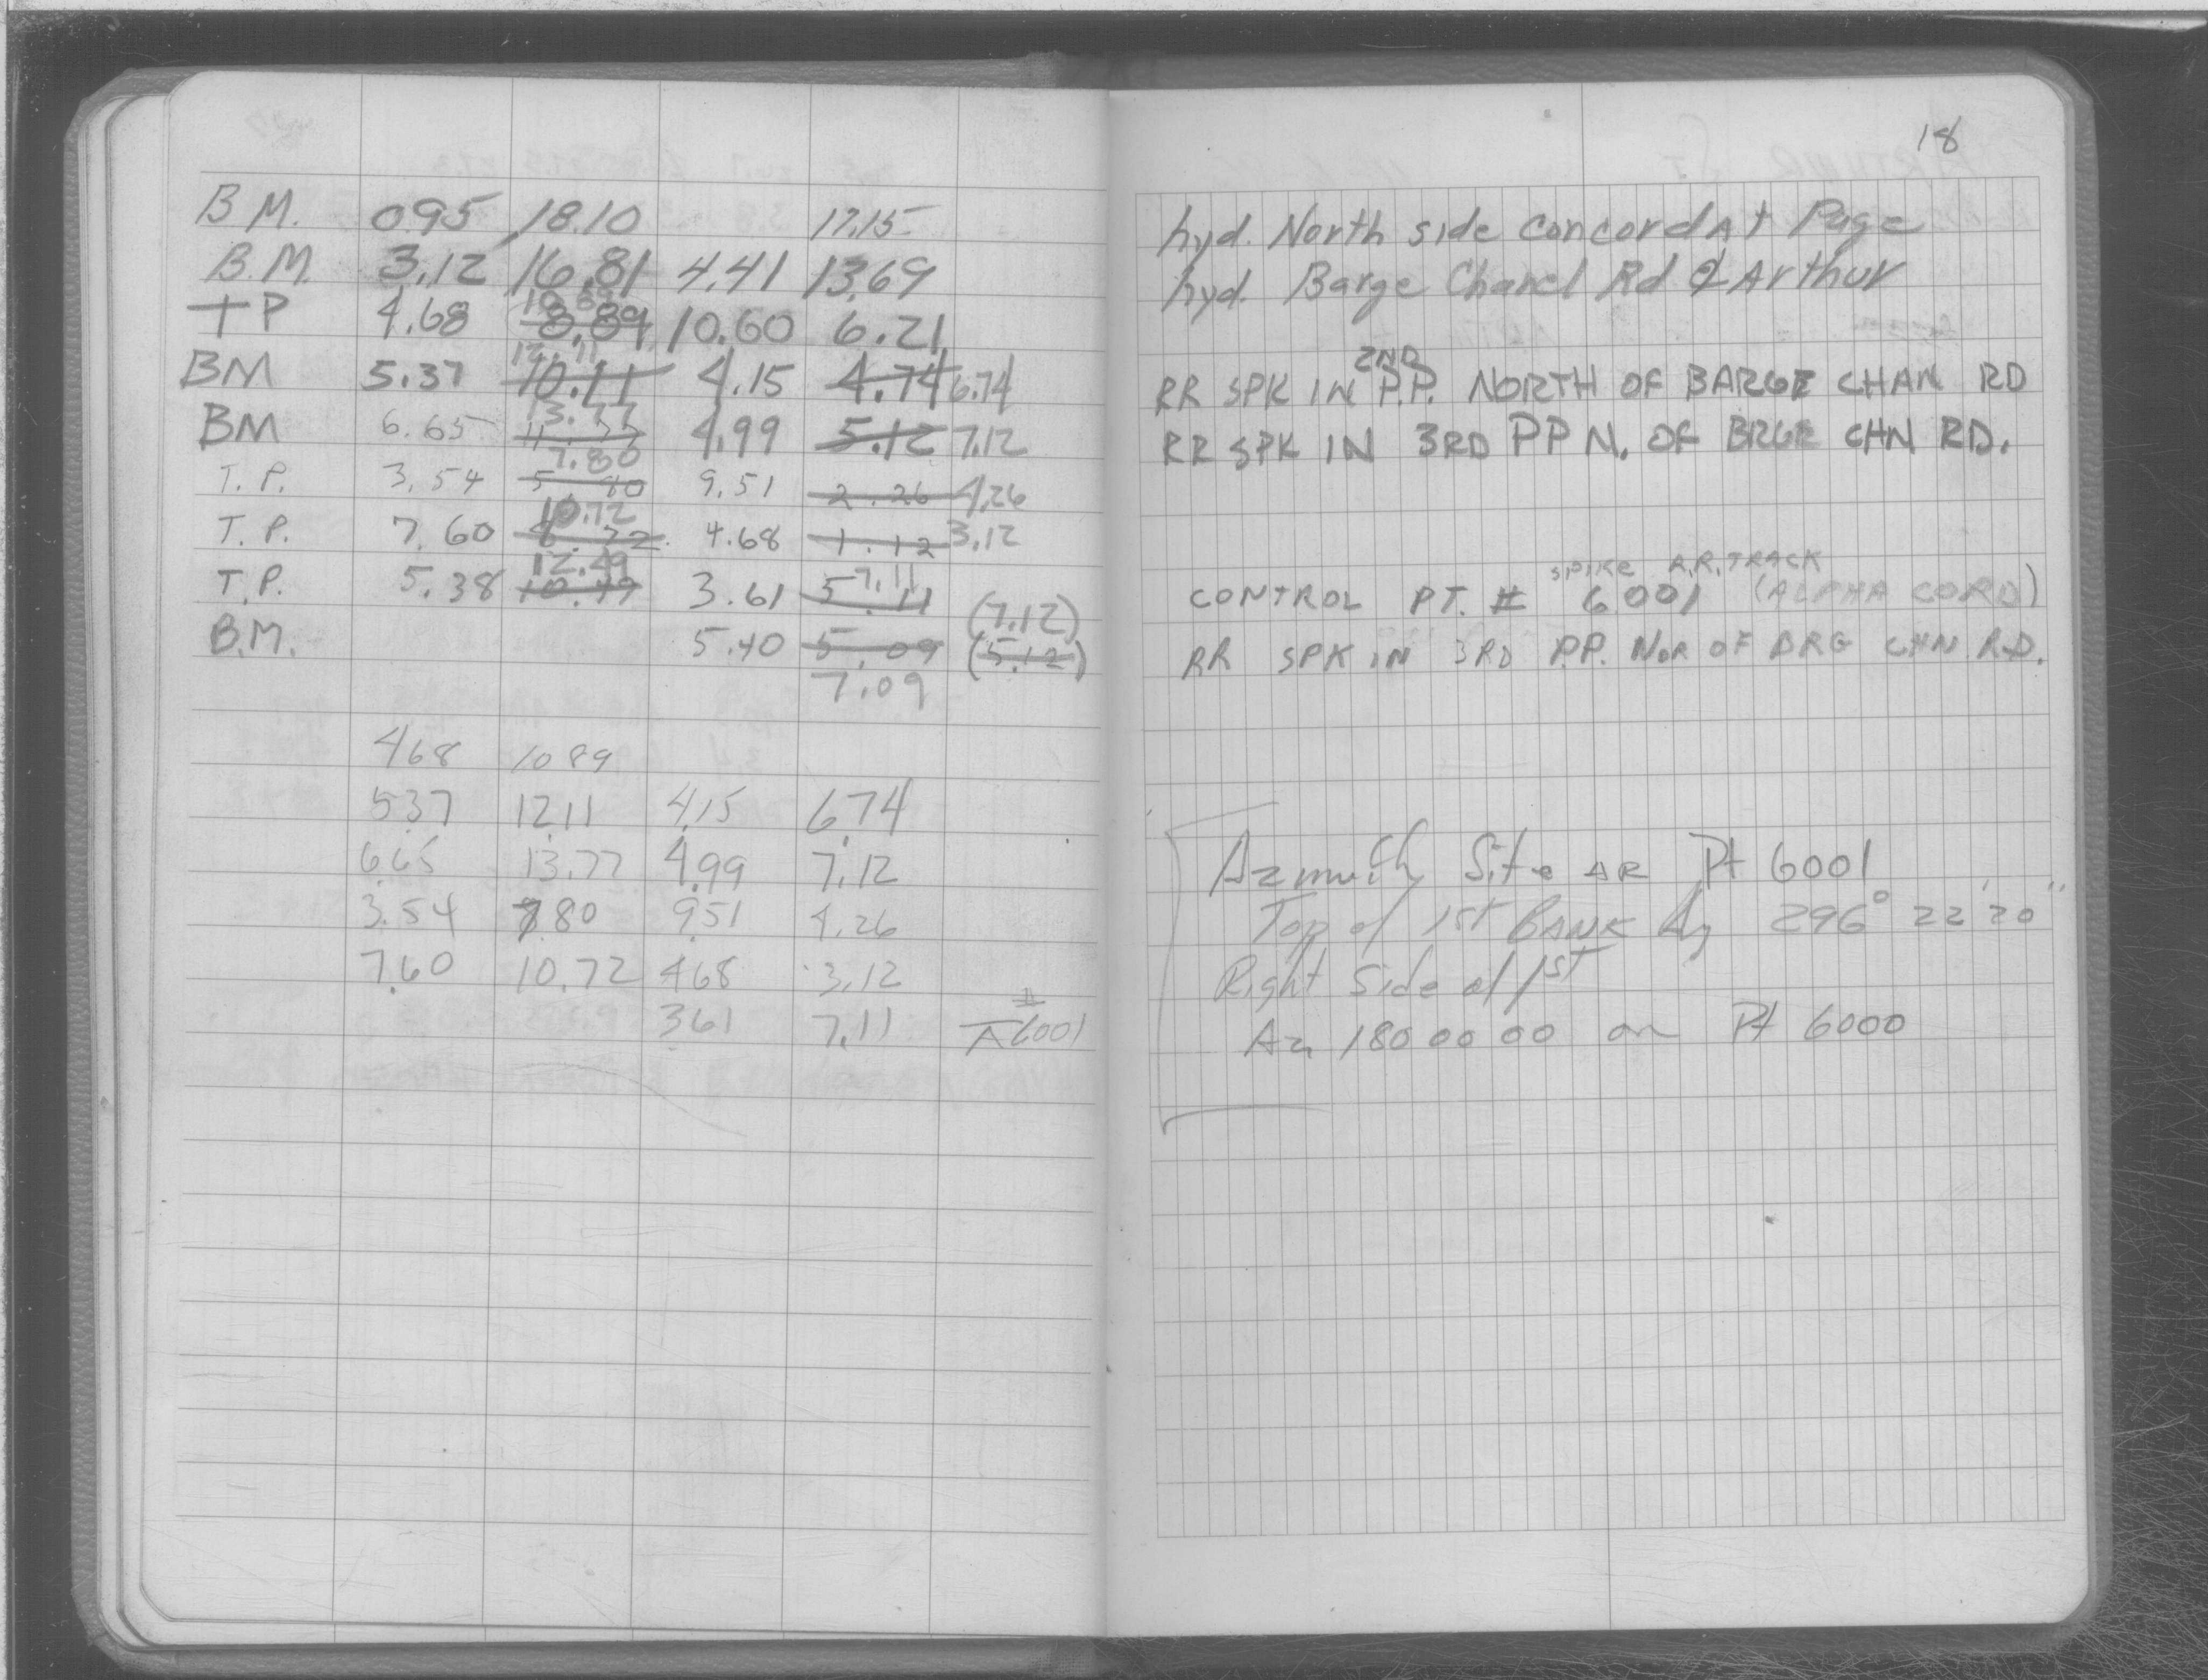 18
B.M. 0.95 18.10 17.15
B.M. 3.12 16.81 4.41 13.69
TP 4.68 10.89 8.89 10.60 6.21
BM 5.37 12.11 10.11 4.15 4.74 6.74
BM 6.65 13.77 11.77 4.99 5.12 7.12
T.P. 3.54 7.80 5.80 9.51 2.26 4.26
T.P. 7.60 10.72 8.72 4.68 1.12 3.12
T.P. 5.38 12.49 10.49 3.61 5.11 7.11
(7.12)
B.M. 5.40 5.09 (5.12)
7.09
4.68 10 89
5.37 12.11 4.15 6.74
6.65 13.77 4.99 7.12
3.54 7.80 9.51 4.26
7.60 10.72 4.68 3.12
3.61 7.11 #6001
hyd. North side Concord At Page
hyd. Barge Chanel Rd & Arthur
2ND
RR SPK IN P.P. NORTH OF BARGE CHAN RD
RR SPK IN 3RD PP N. OF BRGE CHN RD.
SPIKE R.R. TRACK
CONTROL PT. # 6001 (ALPHA CORD)
RR SPK IN 3RD P.P. NOR OF BRG CHN RD.
Azmuth Site AR Pt 6001
Top of 1st BANK Az 296° 22' 20"
Right Side of 1st
Az 180 00 00 on Pt 6000